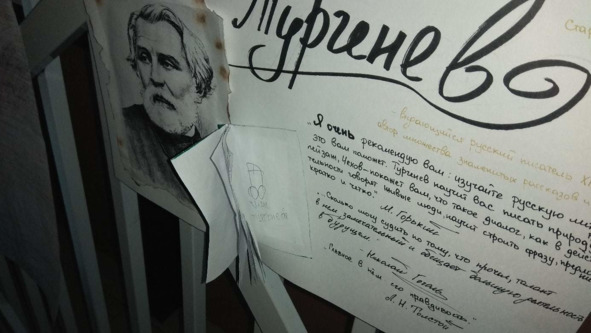 Тургенев
Ста
- выдающийся русский писатель
автор множества знаменитых рассказов и
"Я очень рекомендую вам: изучайте русскую
это вам поможет. Тургенев научит вас писать природу,
пейзаж, Чехов - покажет вам, что такое диалог, как в
говорят живые люди, научит строить фразу,
кратко и чётко."
М. Горький
"Сколько могу судить по тому, что прочел, талант
в нем замечательный и обещает большую
в будущем."
Николай Гоголь
"Главное в нём это правдивость"
Л. Н. Толстой